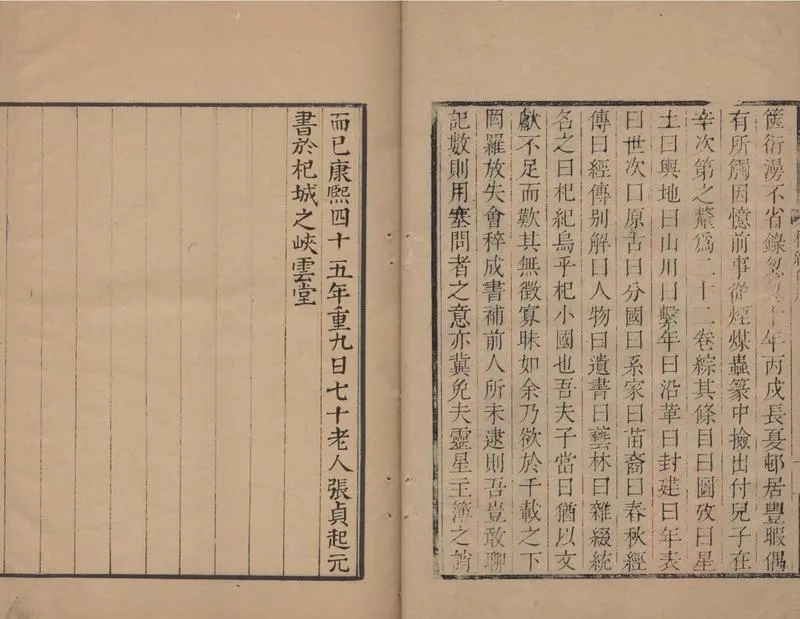 篋衍漫不省錄忽忽十年丙戌長夏邨居豐暇偶
有所觸因憶前事從煙煤蟲篆中撿出付兒子在
辛次第之釐爲二十二卷綜其條目曰圖攷曰星
土曰輿地曰山川曰繫年曰沿革曰封建曰年表
曰世次曰原古曰分國曰系家曰苗裔曰春秋經
傳曰經傳别解曰人物曰遺書曰藝林曰雜綴統
名之曰杞紀烏乎杞小國也吾夫子當日猶以文
獻不足而歎其無徵寡昧如余乃欲於千載之下
罔羅放失會稡成書補前人所未逮則吾豈敢聊
記數則用塞問者之意亦冀免夫靈星王簿之誚
而已康熙四十五年重九日七十老人張貞起元
書於杞城之峽雲堂